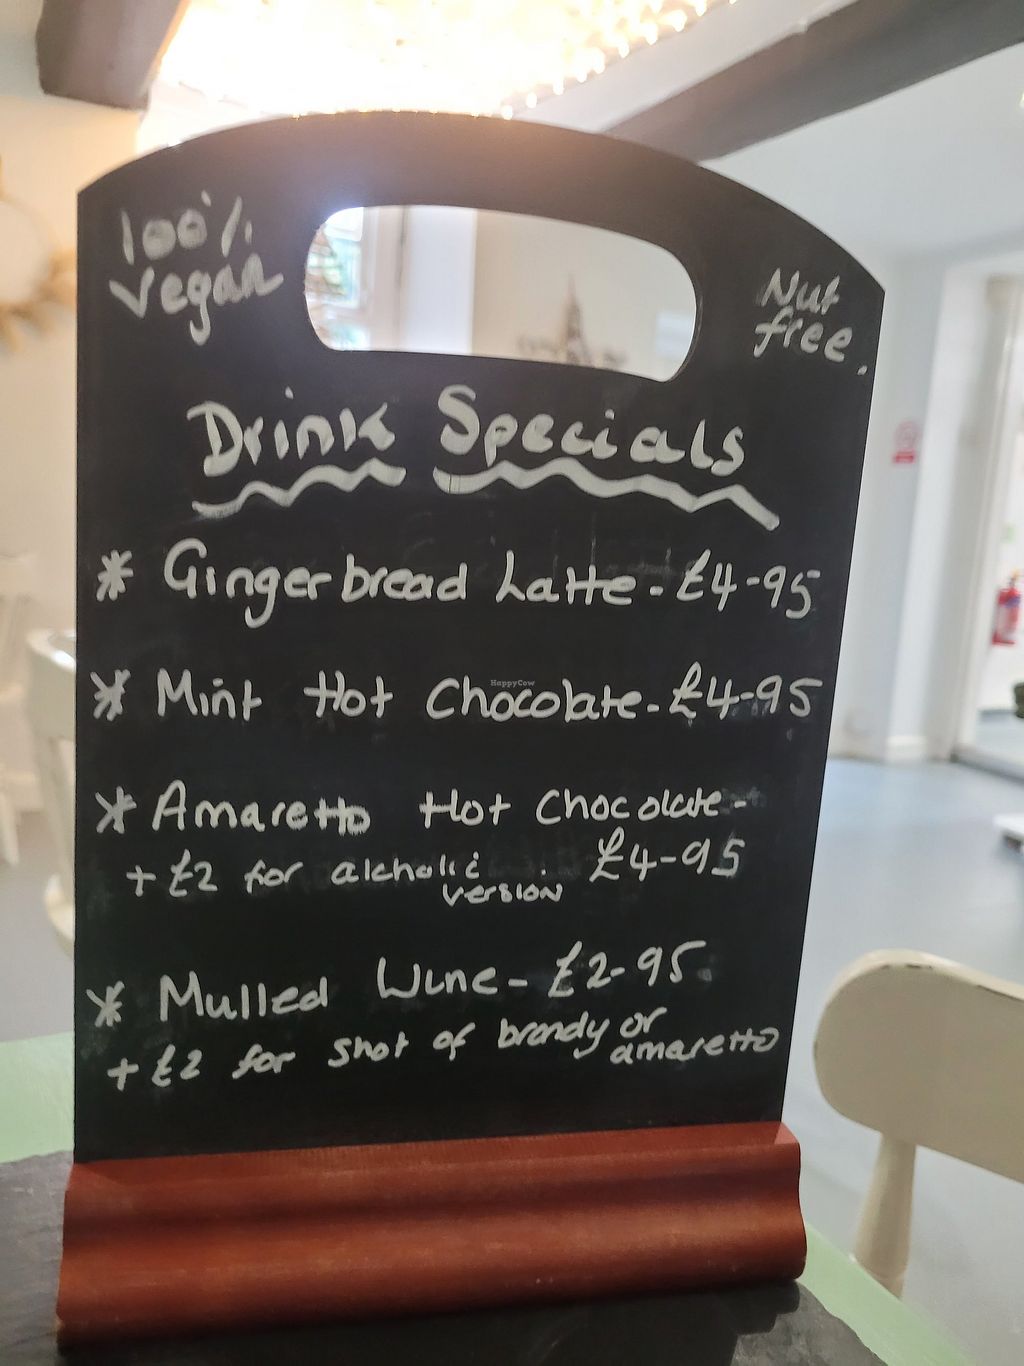 100%
Vegan
Nut
free.
Drink Specials
* Gingerbread Latte - £4-95
* Mint Hot Chocolate - £4-95
HappyCow
* Amaretto Hot Chocolate -
+ £2 for alcholic version £4-95
* Mulled Wine - £2-95
+ £2 for shot of brandy or amaretto